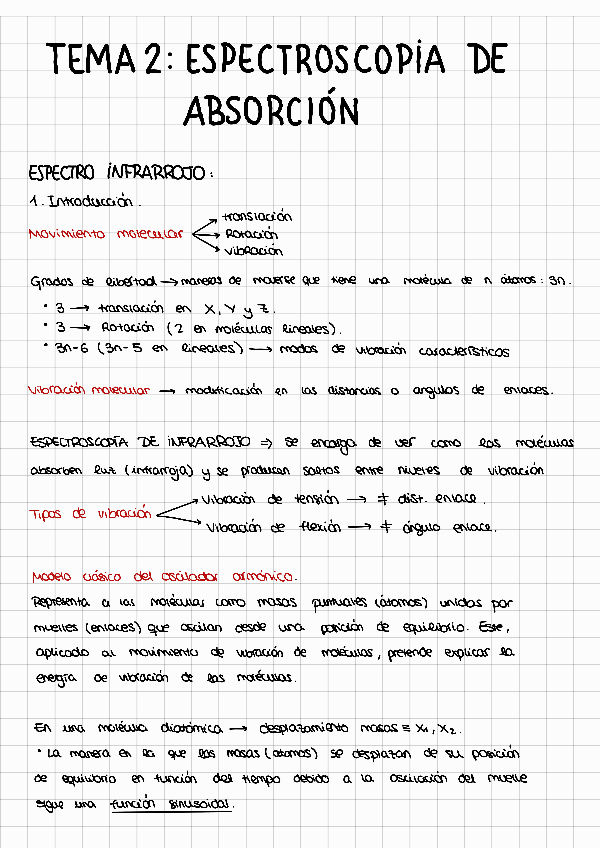 TEMA 2: ESPECTROSCOPÍA DE
ABSORCIÓN
ESPECTRO INFRARROJO:
1. Introducción.
Movimiento molecular → translación
→ Rotación
→ vibración
Grados de libertad → maneras de moverse que tiene una molécula de n átomos: 3n.
· 3 → translación en X, Y y Z.
· 3 → Rotación (2 en moléculas lineales).
· 3n-6 (3n-5 en lineales) → modos de vibración característicos
Vibración molecular → modificación en las distancias o angulos de enlaces.
ESPECTROSCOPÍA DE INFRARROJO ⇒ se encarga de ver como las moléculas
absorben luz (infrarroja) y se producen saltos entre niveles de vibración
Tipos de vibración → vibración de tensión → ≠ dist. enlace.
→ vibración de flexión → ≠ ángulo enlace.
Modelo clásico del oscilador armónico.
Representa a las moléculas como masas puntuales (átomos) unidas por
muelles (enlaces) que oscilan desde una posición de equilibrio. Este,
aplicado al movimiento de vibración de moléculas, pretende explicar la
energía de vibración de las moléculas.
En una molécula diatómica → desplazamiento masas ≡ X₁, X₂.
· La manera en la que las masas (atomos) se desplazan de su posición
de equilibrio en función del tiempo debido a la oscilación del muelle
sigue una función sinusoidal.